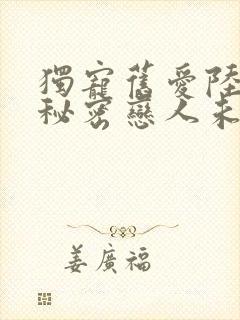 獨寵舊愛陸
秘密戀人未
姜廣福